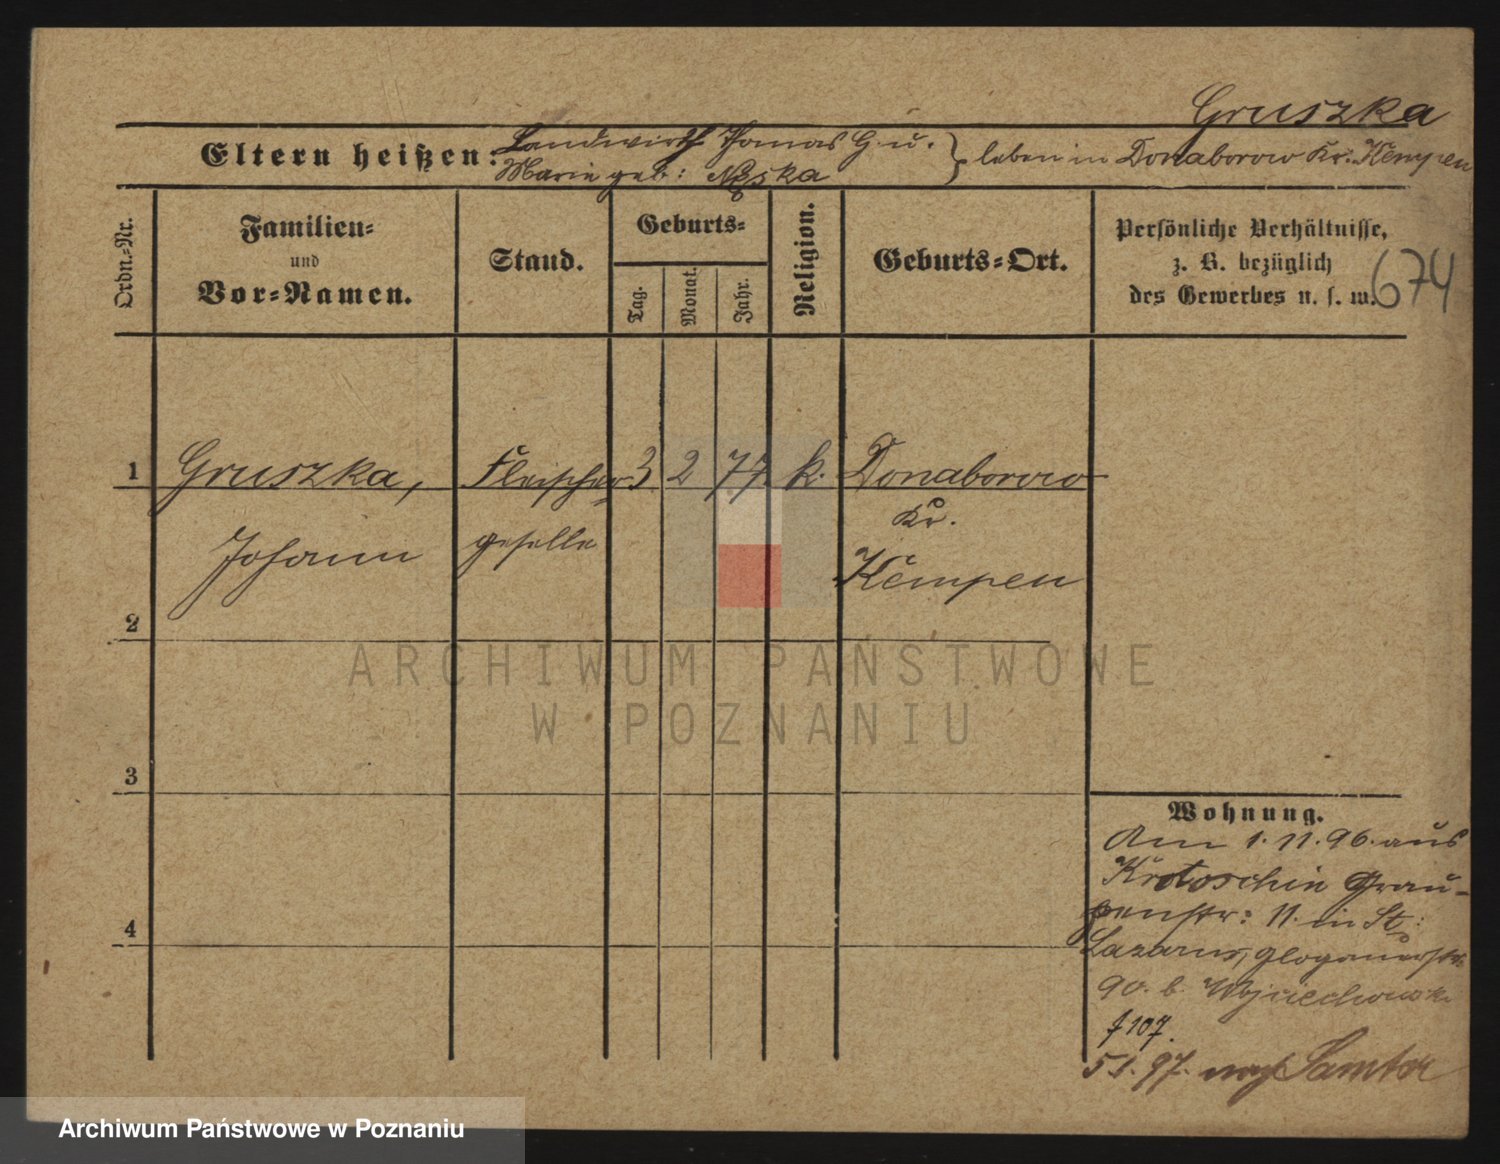 Gruszka
Eltern heißen: Landwirth Thomas G u. } leben in Donaborow Kr. Kempen
Marie geb:
Ordn.-Nr.
Familien-
und
Vor-Namen.
Stand.
Geburts-
Tag.
Monat.
Jahr.
Religion.
Geburts-Ort.
Persönliche Verhältnisse,
z. B. bezüglich
des Gewerbes u. s. w.
674
1 Gruszka, Fleischer 3 2 77. k. Donaborow
Kr.
Johann geselle Kempen
2
ARCHIWUM PAŃSTWOWE
W POZNANIU
3
Wohnung.
Am 1.11.96. aus
Krotoschin Grau-
penstr: 11. in St:
4
Lazarus, Glogauerstr.
90. b. Wojciechowski
f 107.
5 1. 97. nach Samter
Archiwum Państwowe w Poznaniu